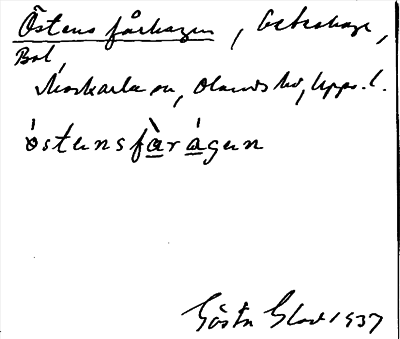 Östens fårhagen, beteshage,
Bol,
Morkarla sn, Olands hd, Upps. l.
östensfàrágen
Gösta Glad 1937